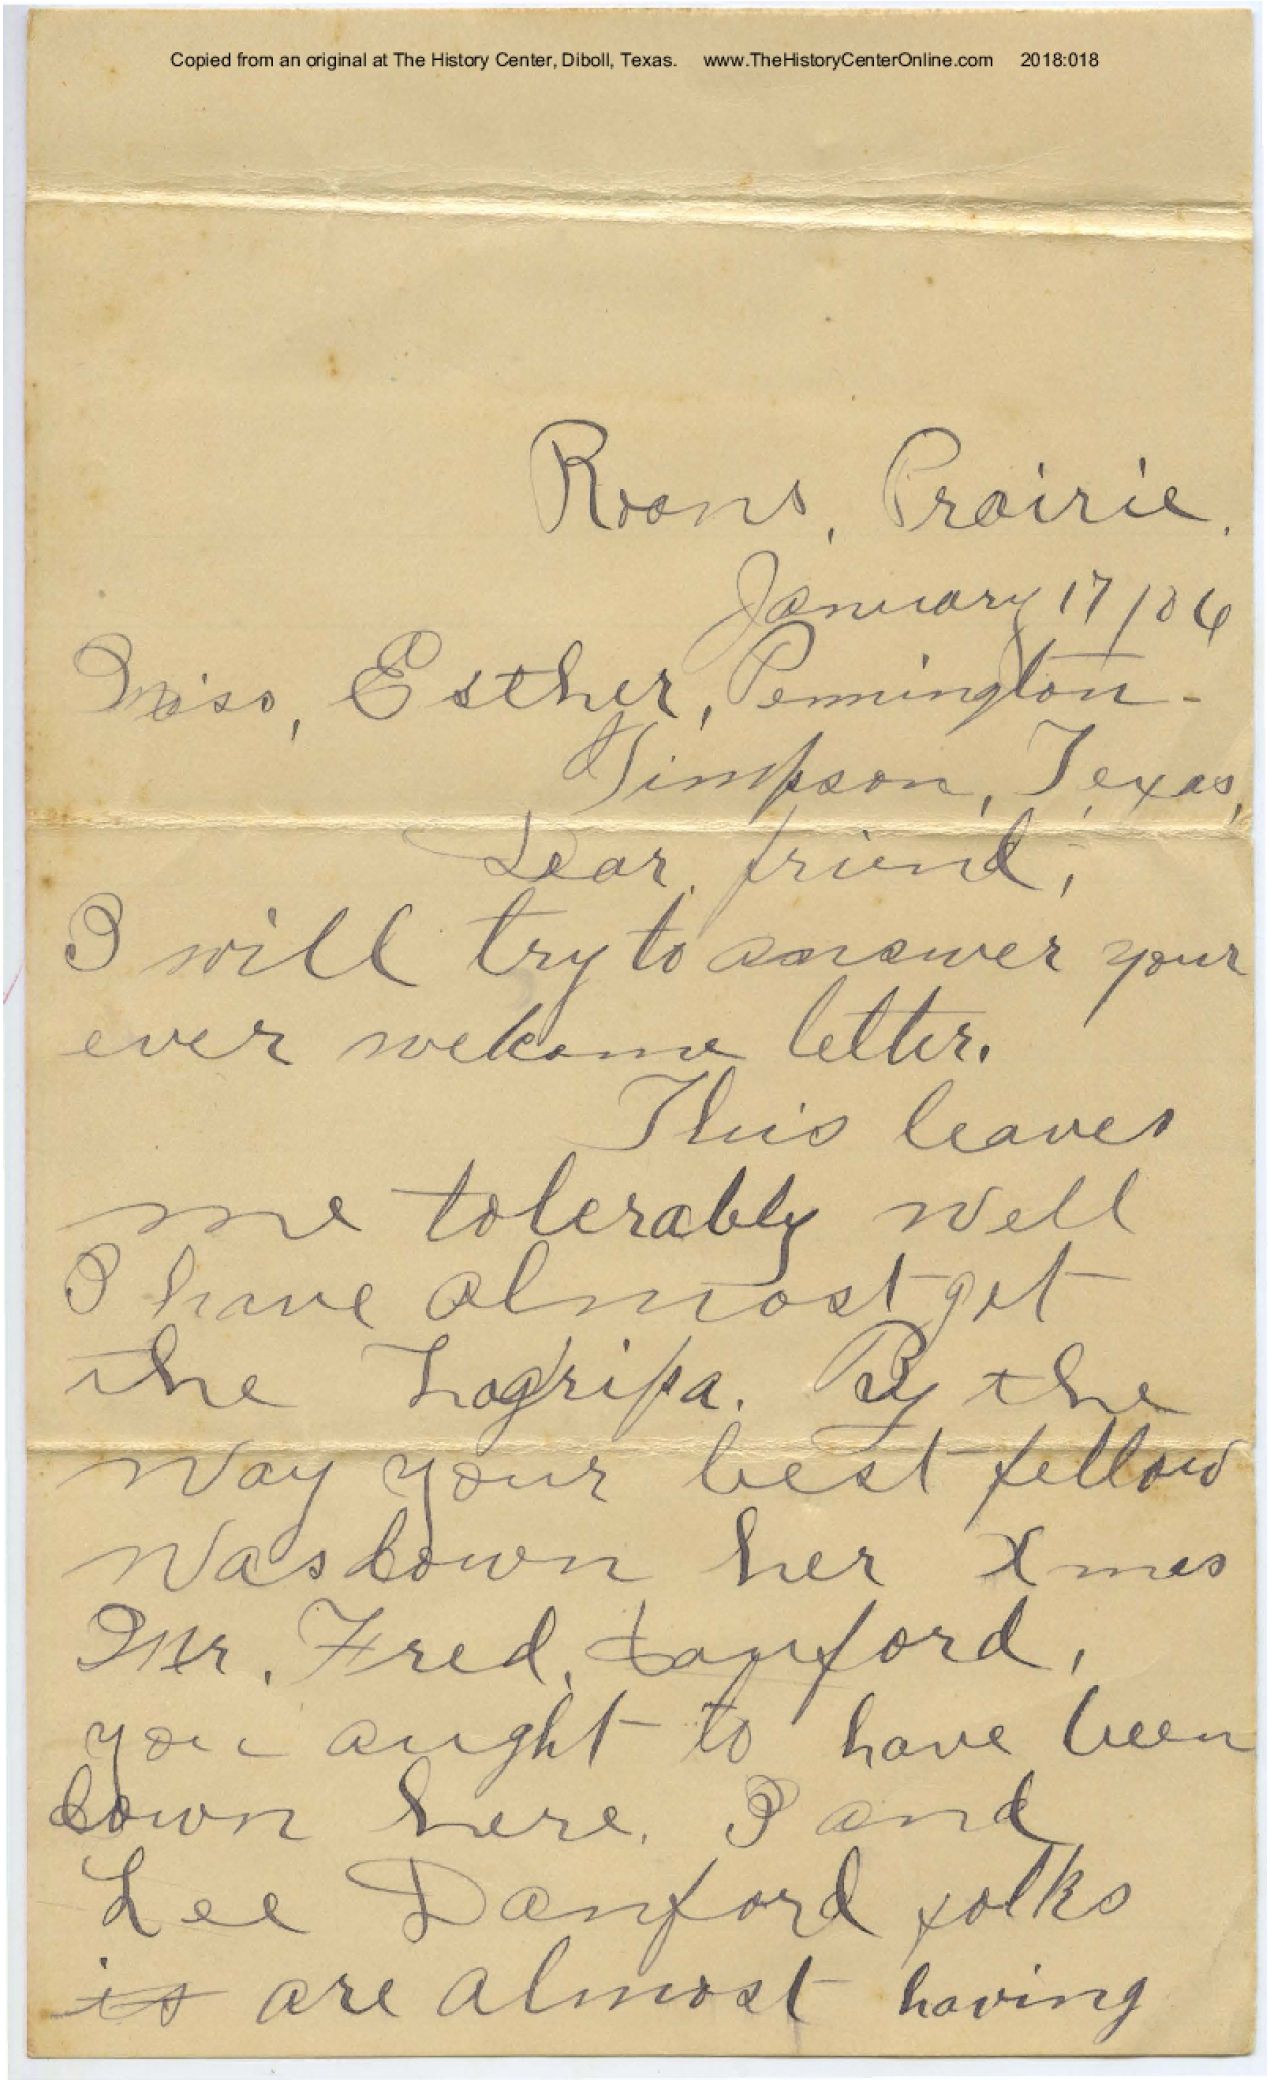 Copied from an original at The History Center, Diboll, Texas. www.TheHistoryCenterOnline.com 2018:018
Roans, Prairie.
January 17/06
Miss, Esther, Pennington-
Timpson, Texas,
Dear friend,
I will try to answer your
ever welcome letter.
This leaves
me tolerably well
I have almost get
the Lagripa. By the
way your best fellow
was down her Xmas
Mr. Fred. Danford,
you aught to have been
down here. I and
Lee Danford folks
is are almost having